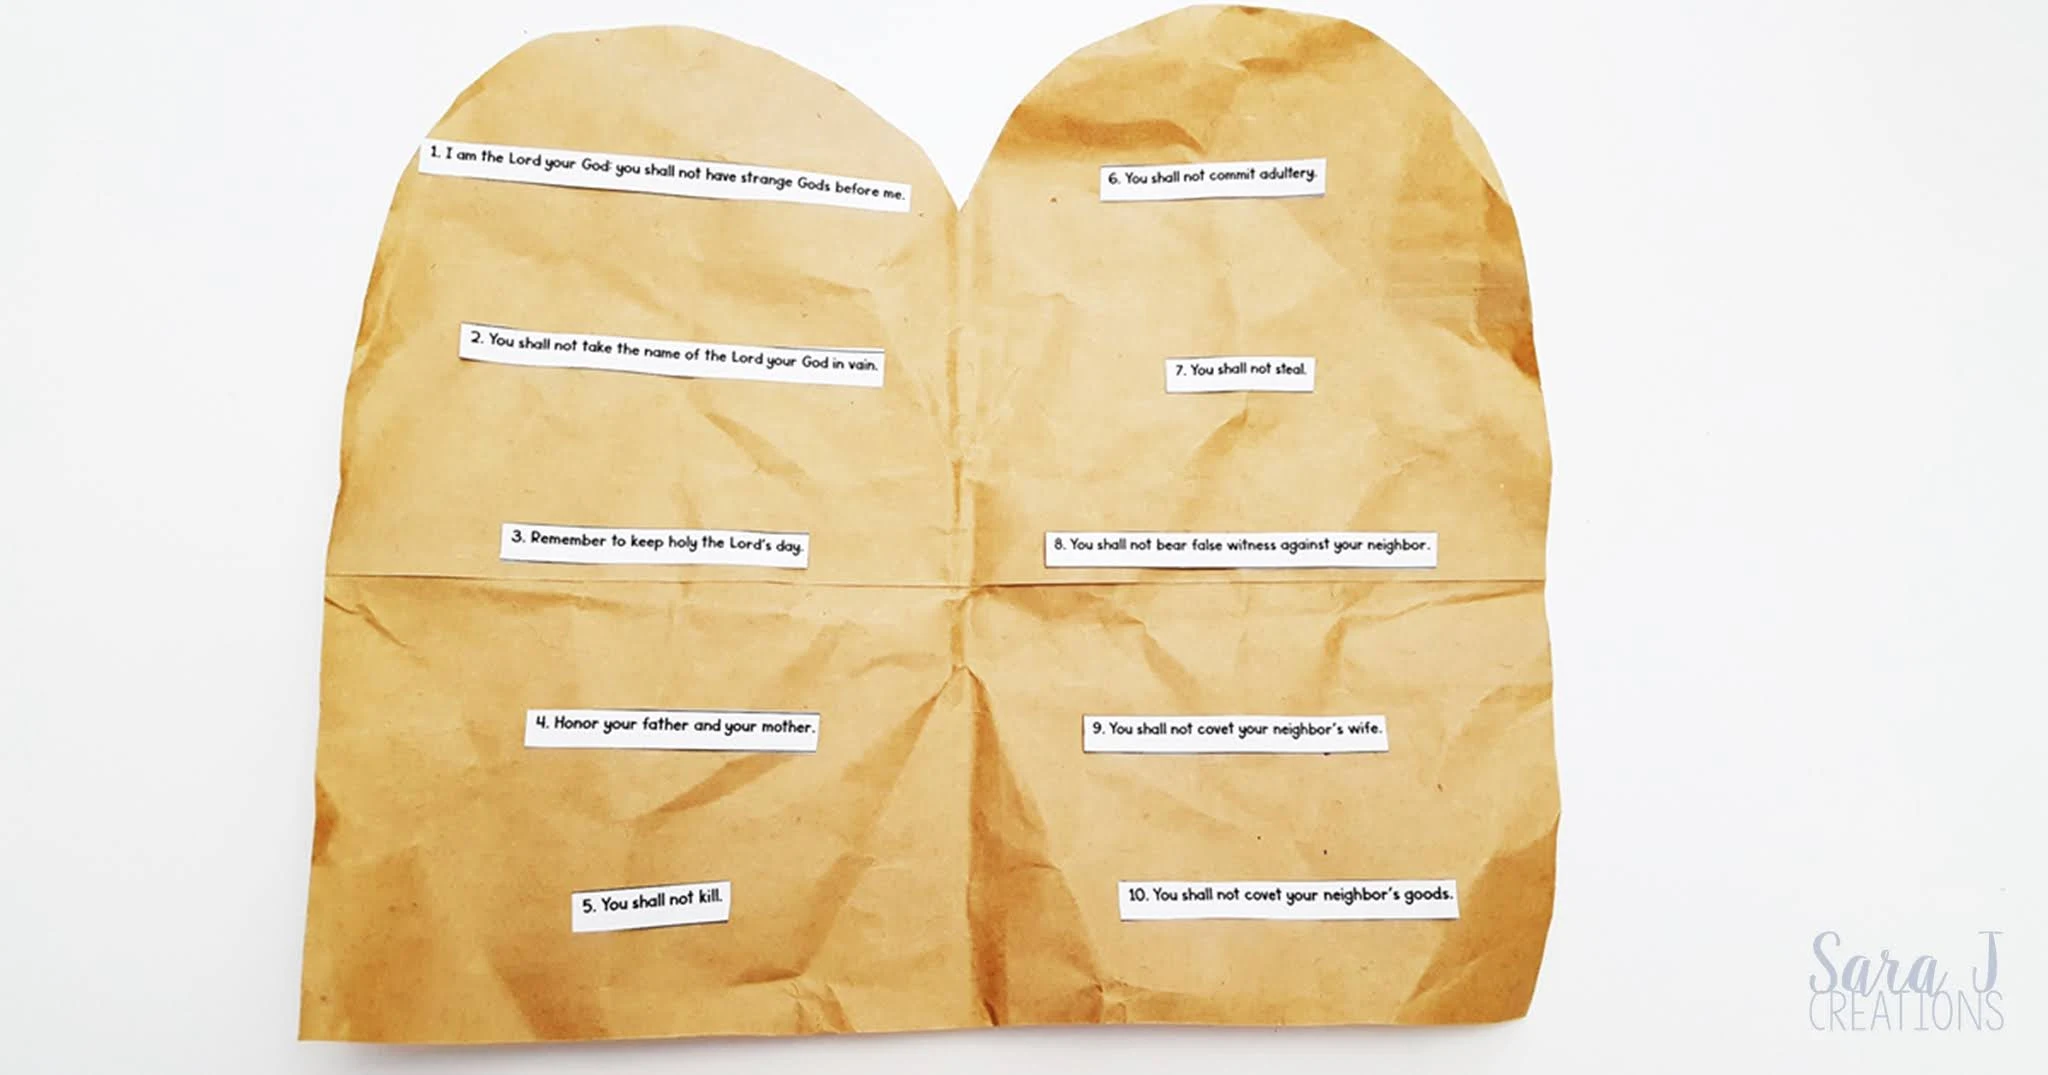 1. I am the Lord your God: you shall not have strange Gods before me.
2. You shall not take the name of the Lord your God in vain.
3. Remember to keep holy the Lord's day.
4. Honor your father and your mother.
5. You shall not kill.
6. You shall not commit adultery.
7. You shall not steal.
8. You shall not bear false witness against your neighbor.
9. You shall not covet your neighbor's wife.
10. You shall not covet your neighbor's goods.
Sara J
CREATIONS